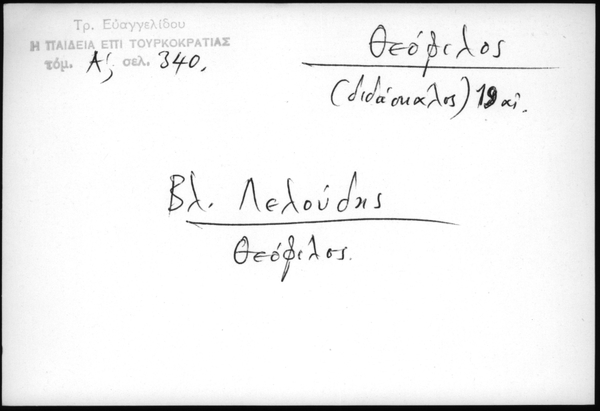 Τρ. Εὐαγγελίδου
Η ΠΑΙΔΕΙΑ ΕΠΙ ΤΟΥΡΚΟΚΡΑΤΙΑΣ
τόμ. Α΄, σελ. 340.
Θεόφιλος
(διδάσκαλος) 19 αἰ.
Βλ. Λελούδης
Θεόφιλος.